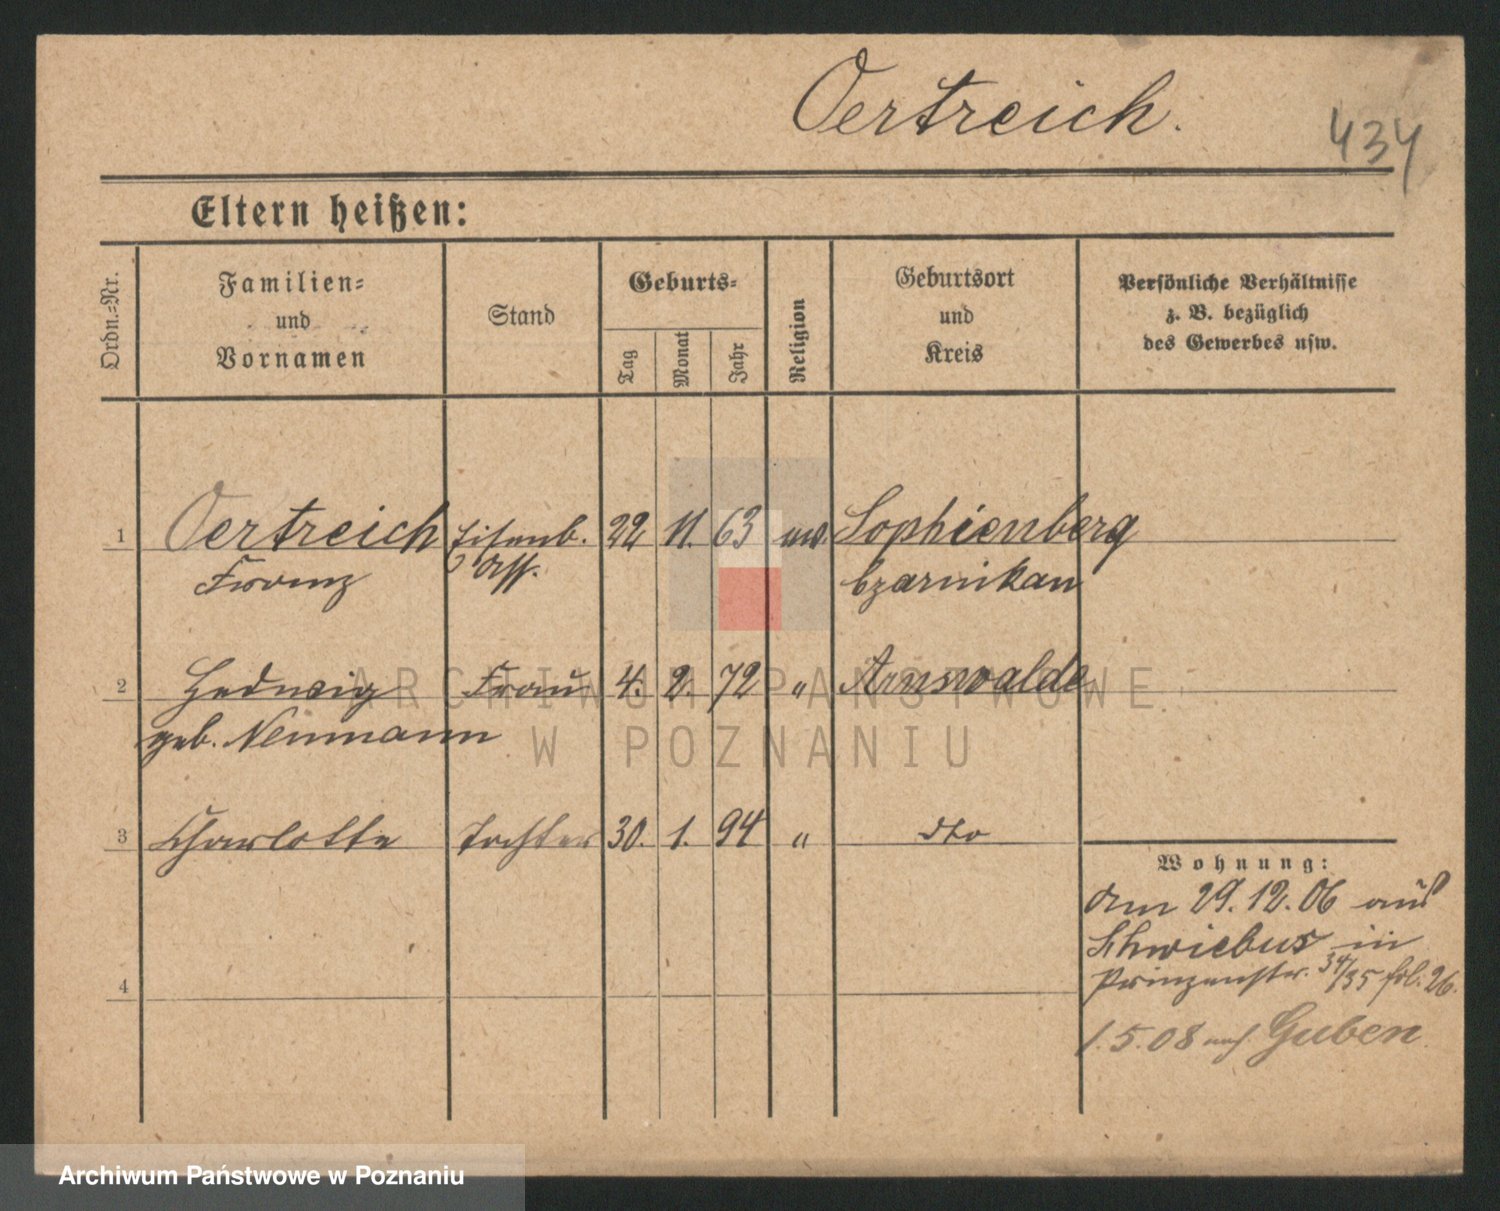 Oertreich.
434
Eltern heißen:
Ordn.-Nr.
Familien-
und
Vornamen
Stand
Geburts-
Tag
Monat
Jahr
Religion
Geburtsort
und
Kreis
Persönliche Verhältnisse
z. B. bezüglich
des Gewerbes usw.
1 Oertreich Eisenb. 22 11. 63 ev. Sophienberg
Franz Ass. Czarnikau
2 Hedwig Frau 4. 2. 72 " Arnswalde
geb. Neumann
3 Charlotte Tochter 30. 1. 94 " dto
4
Wohnung:
Am 29.12.06 aus
Schwiebus in
Prinzenstr. 34/35 frl. 26.
1.5.08 nach Guben
ARCHIWUM PAŃSTWOWE
W POZNANIU
Archiwum Państwowe w Poznaniu